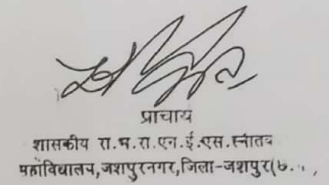 प्राचार्य
शासकीय रा.भ.रा.एन.ई.एस.स्नातव
महाविद्यालय,जशपुरनगर,जिला-जशपुर(छ..,